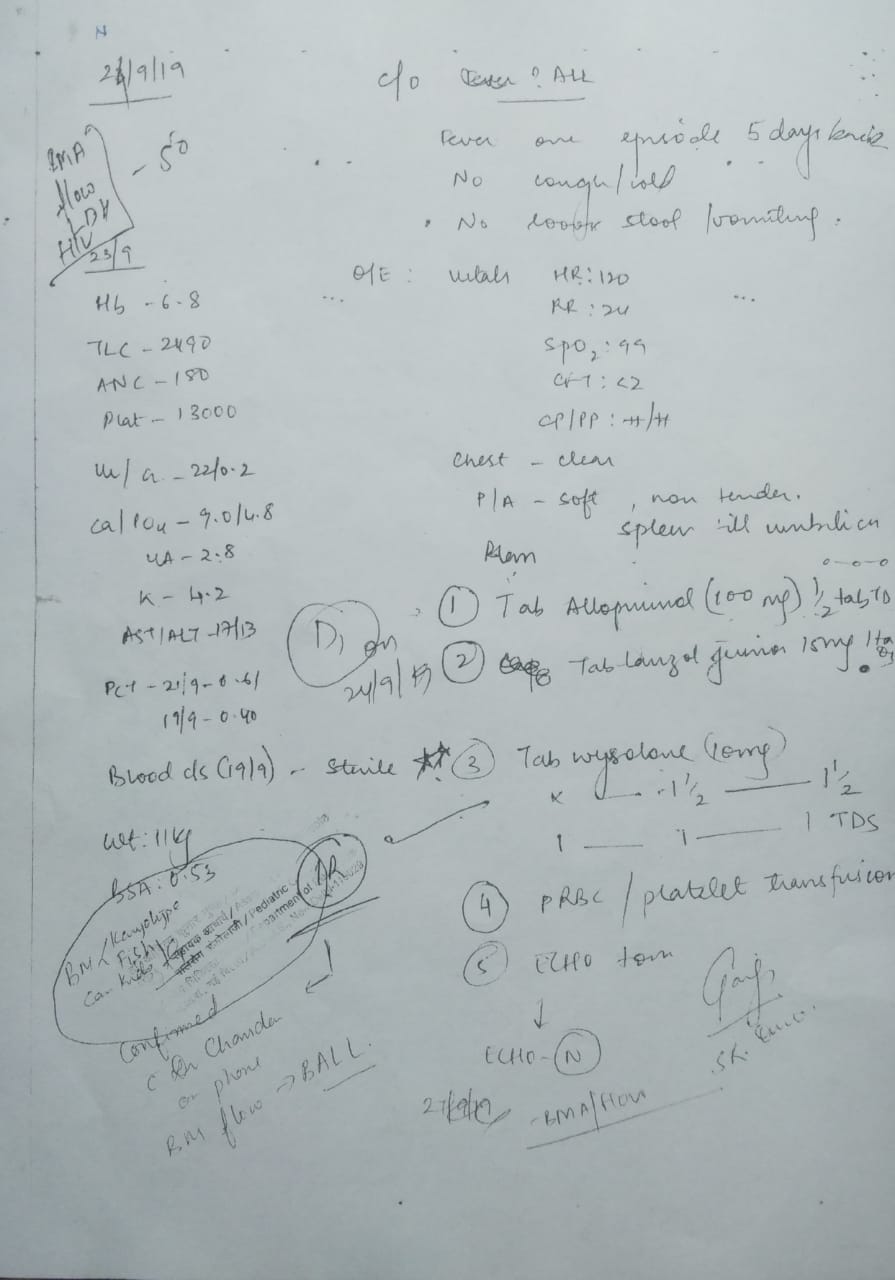 N
24/9/19
c/o Fever ? ALL
BMA
flow
LDH
HIV
- 50
Fever one episode 5 days back
No cough/cold
No loose stool/vomiting.
23/9
Hb - 6.8
TLC - 2490
ANC - 180
Plat - 13000
U/Cr - 22/0.2
Ca/PO4 - 9.0/4.8
UA - 2.8
K - 4.2
AST/ALT - 17/13
PCT - 21/9 - 0.61
19/9 - 0.40
Blood c/s (19/9) - Sterile
Wt: 11 kg
BSA: 0.53
O/E: vitals HR: 120
RR: 24
SpO2: 99
CFT: <2
CP/PP: ++/++
Chest - clear
P/A - soft, non tender.
spleen till umbilicus
Plan
① Tab Allopurinol (100 mg) 1/2 tab TD
② Tab Lanzol junior 15mg 1 tab
D1 on
24/9/19
③ Tab wysolone (10mg)
x — 1 1/2 — 1 1/2
1 — 1 — 1 TDS
④ PRBC/platelet transfusion
⑤ ECHO tom
ECHO - N
27/9/19 - BMA/flow
IR
BM/Karyotype
Fish
Can Kids
Pediatric
Department of
Confirmed
c Dr Chandan
on phone
BM flow → BALL.
SR.